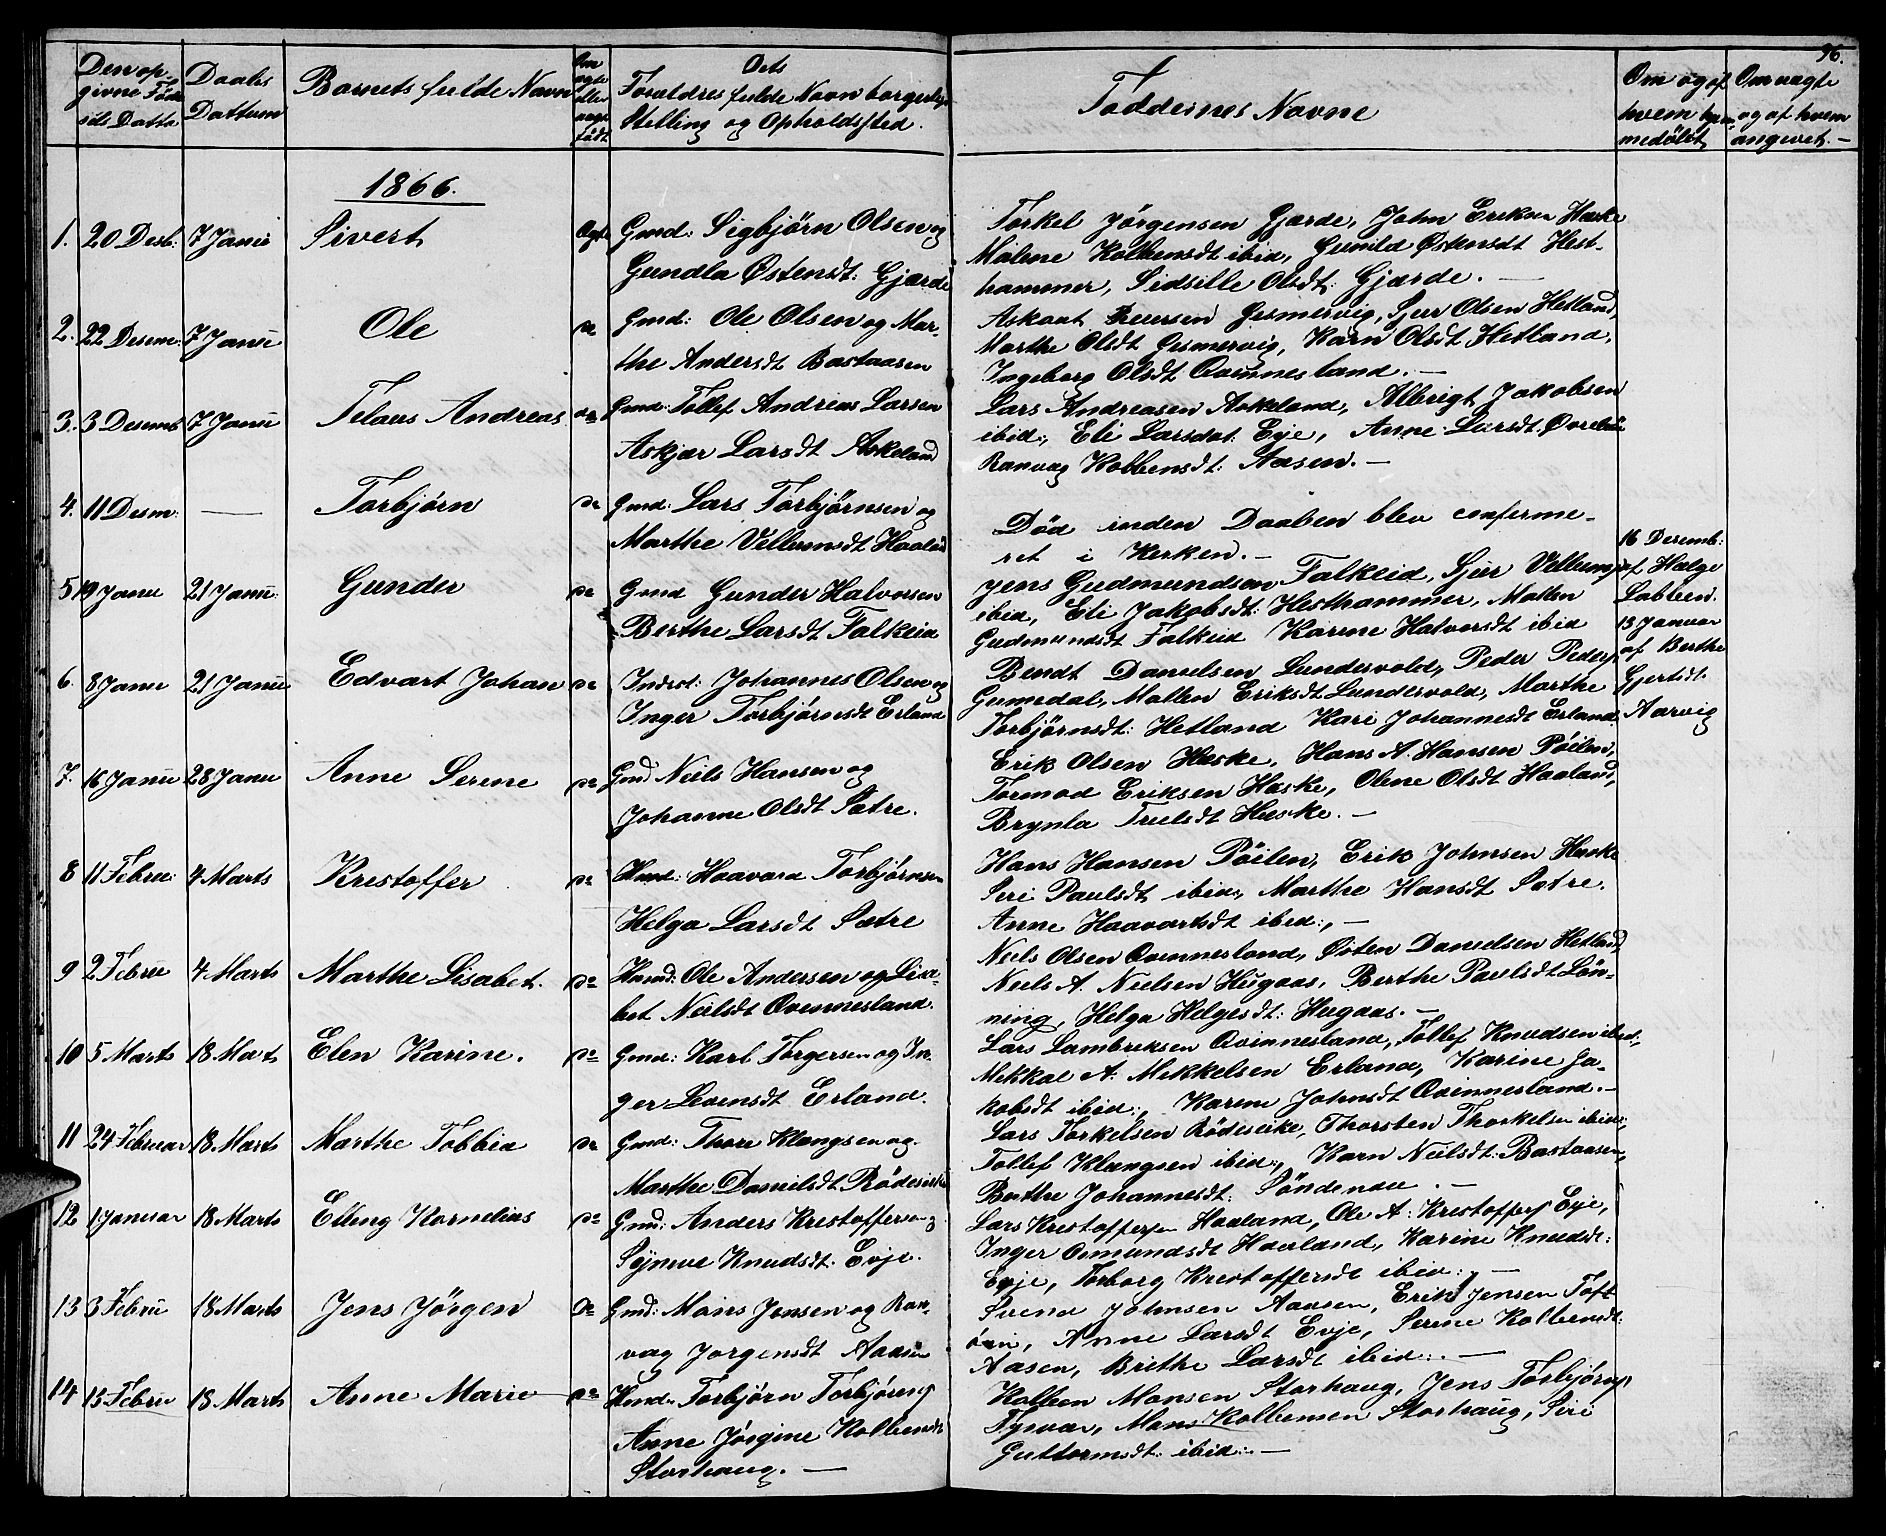 96.
Den op-
givne Fød-
sels Datto
Daabs
Dattum
Barnets fulde Navn
Om
ægte
eller
uægt
født
Dets
Forældres fulde Navn borgerlige
Stelling og Opholdssted.
Faddernes Navne
Om og af
hvem hjem
medøbt
Om uægte
og af hvem
angivet. —
1866.
1. 20 Desb: 7 Janu Sivert Ægte Gmd: Sigbjørn Olsen og
Gundla Østensdt: Gjærde
Torkel Jørgensen Gjærde, John Eriksen Haske
Malene Kolbensdt ibid, Gunild Østensdt Hest-
hammer, Sidsille Olsdt: Gjærde. —
2. 22 Desem: 7 Janu Ole do Gmd: Ole Olsen og Mar-
the Andersdt Bastaasen
Askaut Gismervig, Sjur Olsen Hetland,
Marthe Olsdt Gismervig, Karn Olsdt Hetland,
Ingeborg Olsdt Qvinnesland. —
3. 3 Desemb 7 Janu Telaus Andreas do Gmd: Tollef Andreas Larsen
Askjær Larsdt Askeland
Lars Andreasen Askeland, Albrigt Jakobsen
ibid:, Eli Larsdat: Eje, Anne Larsdt
Ranvag Kolbensdt: Aasen. —
4. 11 Desm: — Torbjørn do Gmd: Lars Torbjørnsen og
Marthe Vellumsdt Haaland
Død inden Daaben blev conferme-
ret i Kerken. —
16 Desemb:
af Helge
Labben.
5 19 Janu 21 Janu: Gunder do Gmd Gunder Halvorsen
Berthe Larsdt Falkeid
Jens Gudmundsen Falkeid, Sjur Vellums
ibid, Eli Jakobsdt: Hesthammer, Mallen
Gudmundsdt Falkeid Karine Halvorsdt ibid
13 Januar
af Berthe
Gjertsdt:
Aarvig
6. 8 Janu 21 Janu Edvart Johan do Inderst: Johannes Olsen og
Inger Torbjørnsdt Erland
Bendt Danielsen Lundervold, Peder Peders
Gumedal, Mallen Eriksdt Lundervold, Marthe
Torbjörnsdt: Hetland Kari Johannesdt Erland
7. 16 Janu 28 Janu Anne Serine do Gmd Neils Hansen og
Johanne Olsdt Sætre.
Erik Olsen Haske, Hans A. Hansen Pöilen,
Tormod Eriksen Haske, Olene Olsdt Haaland,
Brynla Truelsdt Haske. —
8 11 Febru: 4 Marts Kristoffer do Husmd: Haavard Torbjørnsen
Helga Larsdt Sætre
Hans Hansen Pöilen, Erik Johnsen Haske
Siri Paulsdt ibid:, Marthe Hansdt Sætre.
Anne Haavartsdt ibid:, —
9 2 Febru 4 Marts Marthe Lisabet. do Husmd: Ole Andersen og Lisa-
bet Neilsdt Qvinnesland.
Neils Olsen Qvinnesland, Østen Danielsen Hetland
Neils A. Nielsen Hugaas, Berthe Paulsdt Lön-
ning, Helga Helgesdt: Hugaas. —
10 5 Marts 18 Marts Elen Karine. do Gmd: Karl Torgersen og In-
ger Levensdt Erland.
Lars Lambriksen Qvinnesland, Tollef Knudsen ibid:,
Mekkal A. Mekkelsen Erland, Karine Ja-
kobsdt ibid:, Karen Johnsdt Qvinnesland. —
11 24 Februar 18 Marts Marthe Tobbia do Gmd: Thore Klangsen og
Marthe Danielsdt Rödeseike
Lars Torkelsen Rödeseike, Thorsten Thorkelsen ibid:,
Tollef Klungsen ibid:, Karn Neilsdt: Bastaasen,
Berthe Johannesdt: Söndenaa. —
12 1 Januar 18 Marts Elling Kornelius do Gmd: Anders Kristoffersen og
Synneve Knudsdt: Evje.
Lars Kristoffersen Haaland, Ole A: Kristoffers Eje,
Inger Osmundsdt Haaland, Karine Knudsdt:
Evje, Torborg Kristoffersdt ibid:, —
13 3 Febru 18 Marts Jens Jörgen do Gmd: Mans Jensen og Ran-
vag Jorgensdt Aaasen
Svend Johnsen Aaasen, Erik Jensen Toft
öen, Anne Larsdt Evje, Serine Kolbensdt:
Aasen, Brithe Larsdt ibid:. —
14 15 Febru 18 Marts Anne Marie do Husmd: Torbjörn Torbjörns
Anne Jörgine Kolbensdt
Storhaug. —
Kolben Mansen Storhaug, Jens Torbjörns
Tysvær, Mans Kolbensen Storhaug, Siri
Guttormsdt: ibid:. —